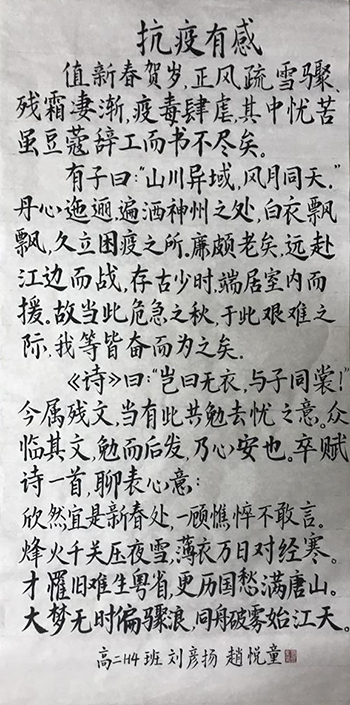 抗疫有感
值新春贺岁,正风疏雪骤、
残霜凄渐,疫毒肆虐,其中忧苦
虽豆蔻辞工而书不尽矣。
有子曰:“山川异域,风月同天.”
丹心迤逦,遍洒神州之处,白衣飘
飘,久立困疫之所.廉颇老矣,远赴
江边而战,存古少时,端居室内而
援。故当此危急之秋,于此艰难之
际.我等皆奋而为之矣.
《诗》曰:“岂曰无衣,与子同裳!”
今属残文,当有此共勉去忧之意。众
临其文,勉而后发,乃心安也。卒赋
诗一首,聊表心意:
欣然宜是新春处,一顾憔悴不敢言。
烽火千关压夜雪,薄衣万日对经寒。
才罹旧难生粤省,更历国愁满唐山。
大梦无时偏骤浪,同舟破雾始江天。
高二H4班 刘彦扬 趙悦童